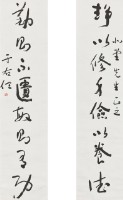 静以修身儉以養德
小雲先生正之
勤則不匱敏則有功
于右任